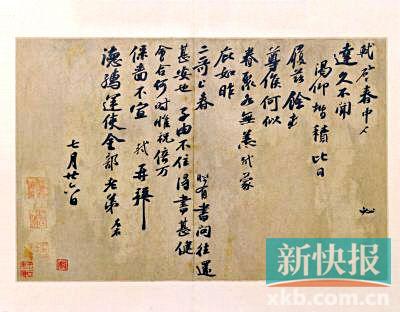 軾啓春中
達久不聞
渴仰增積比日
履兹餘
尊候何似
眷聚各無恙軾蒙
庇如昨
二哥上春 有書問往還
甚安也子由不住得書甚健
會合何時惟祝倍万
保嗇不宣 軾再拜
德孺運使金部老弟
七月廿六日
新快报
xkb.com.cn